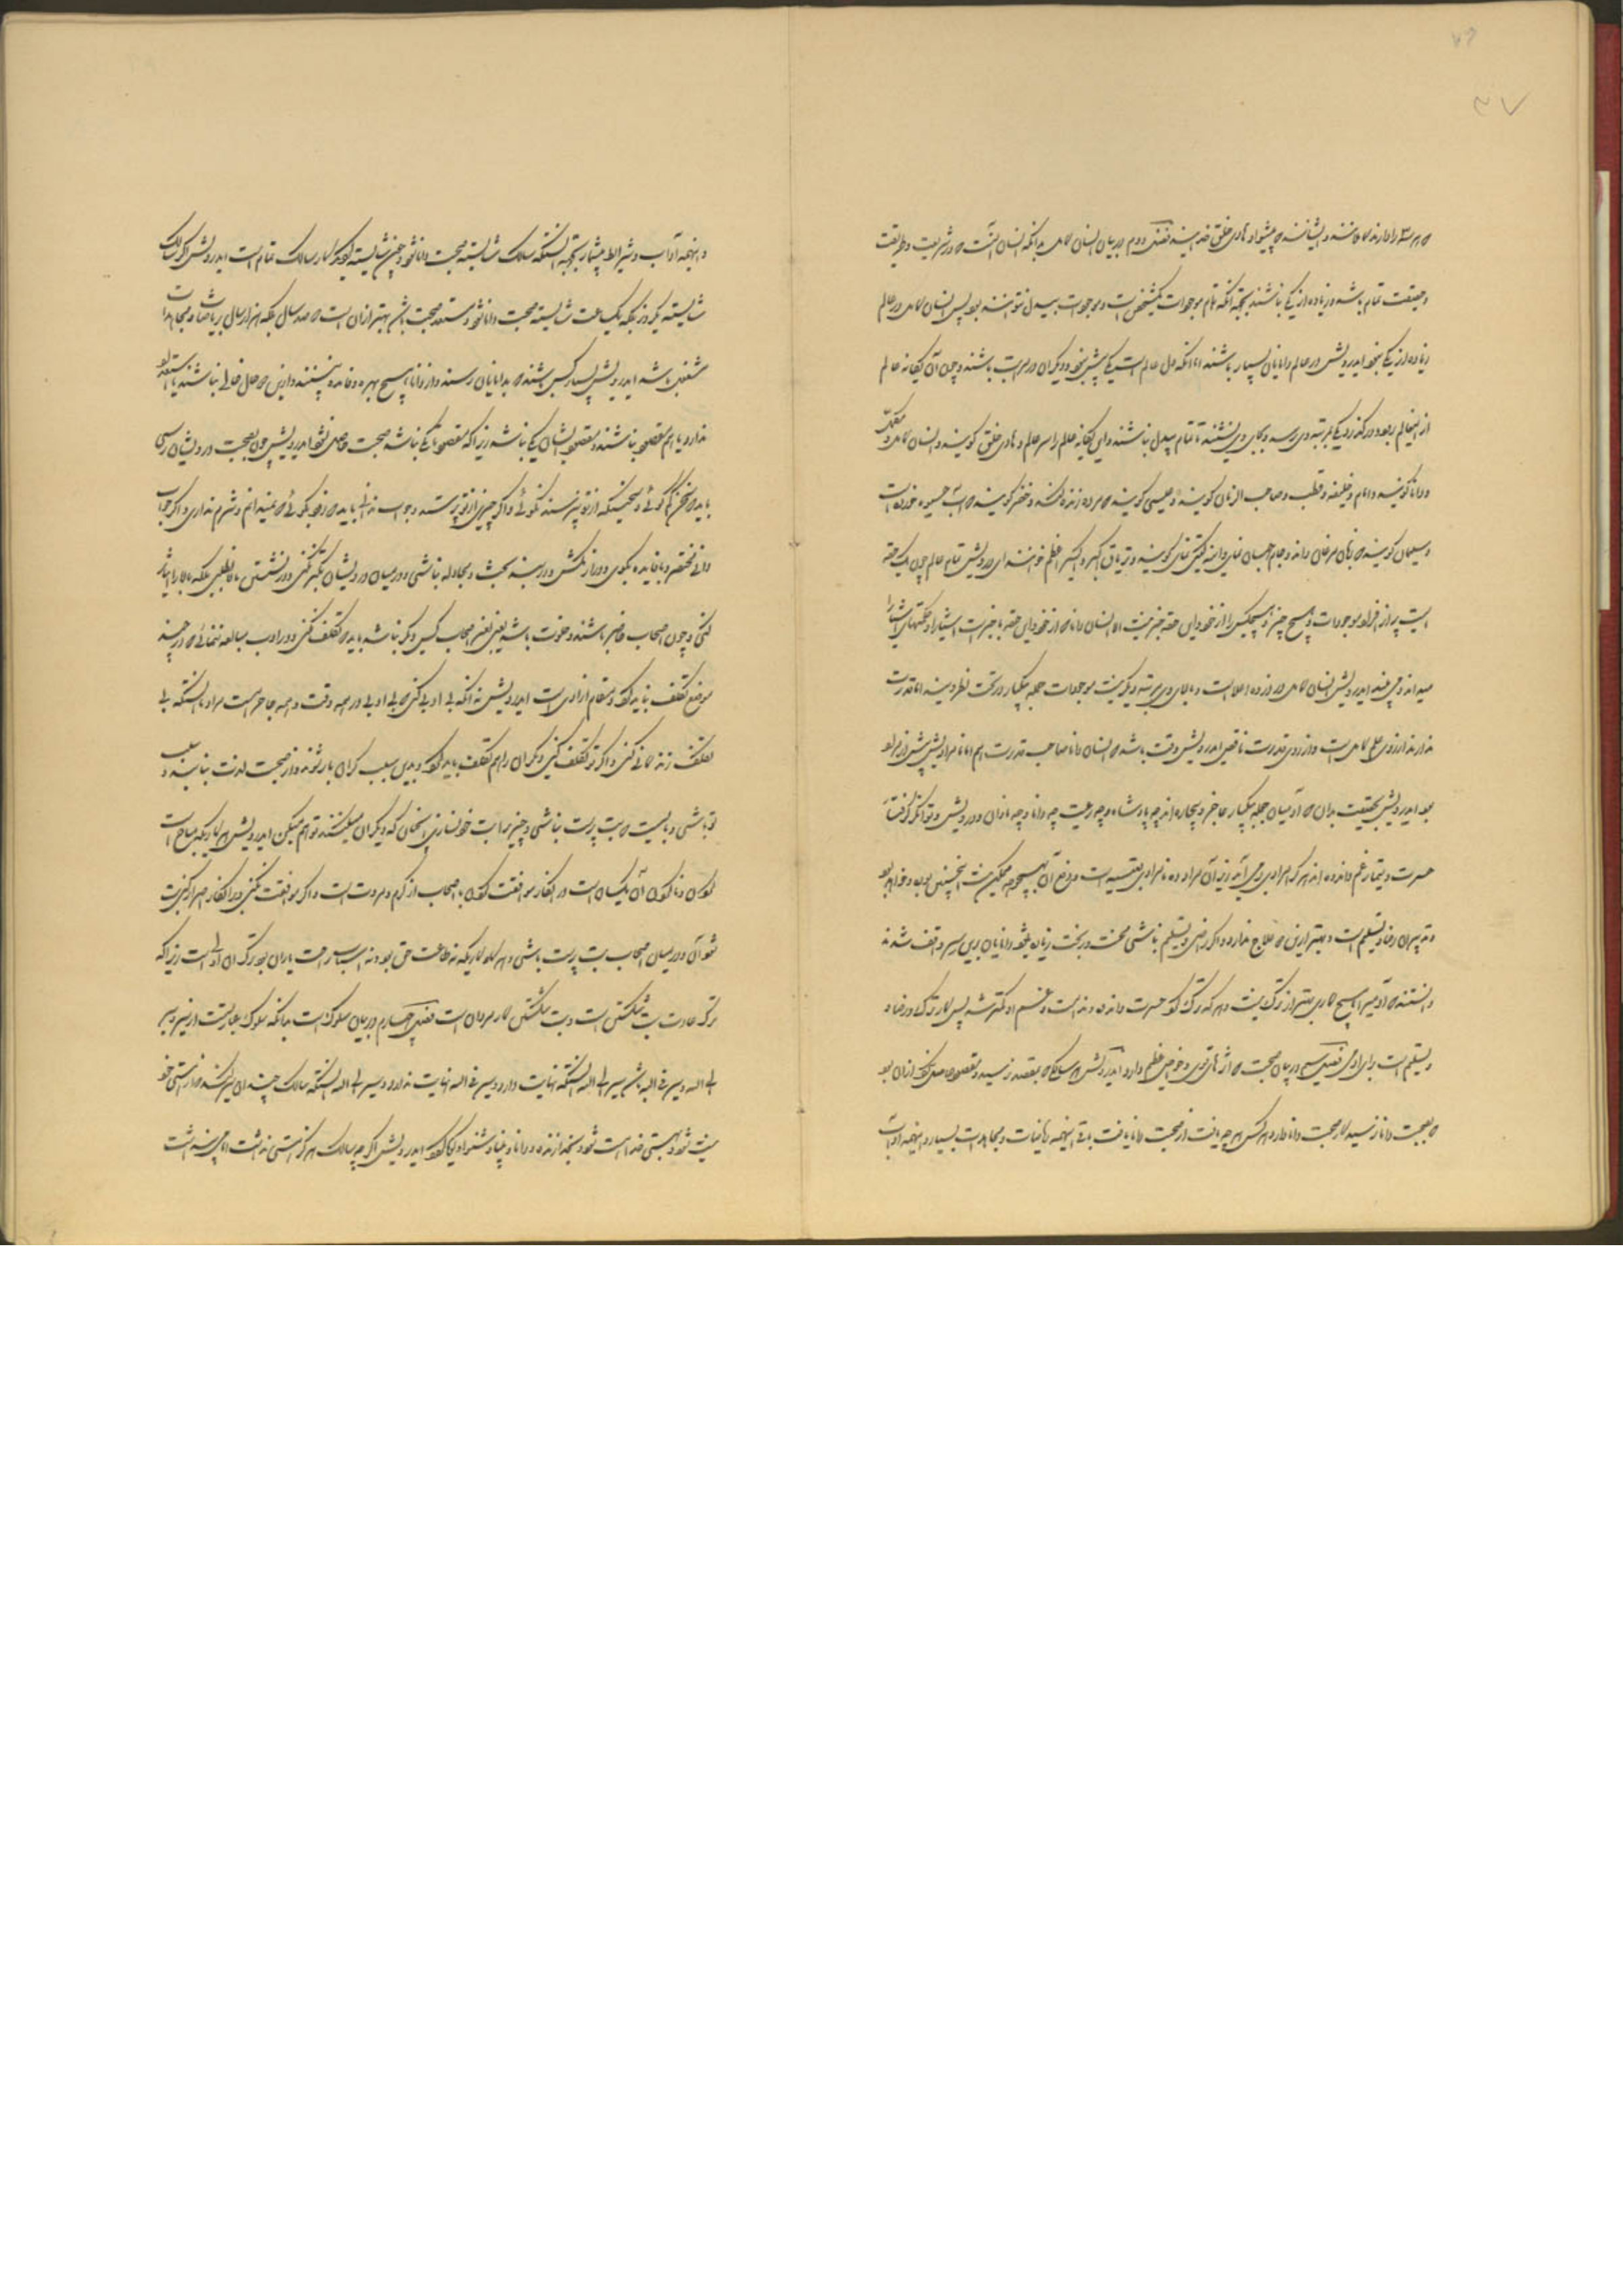 که هر سه را دارند کاملانند و ایشانند که پیشوا و هادی خلق خدایند فصل دوم در بیان انسان کامل بدانکه انسان آنست که در شریعت و طریقت
و حقیقت تمام باشد و زیاده از یکی نباشند بجهة آنکه تمام موجودات یکشخص است و موجودات بیدل نتوانند بود پس انسان کامل در عالم
زیاده از یکی نبود ایدرویش در عالم دانایان بسیار باشند اما آنکه دل عالم است یکی بیش نبود و دیگران در مراتب باشند و چون آن یگانه عالم
از اینعالم رود و درگذرد یکی بمرتبه وی رسد و بجای وی نشیند تا عالم بیدل نباشند و این یگانه عالم را سر عالم و هادی خلق گویند و انسان کامل و مکمل
و دانا گویند و امام و خلیفه و قطب و صاحب الزمان گویند و عیسی گویند که مرده زنده کند و خضر گویند که آب حیوة خورده است
و سلیمان گویند که زبان مرغان داند و جام جهان نمای و آینه گیتی نمای گویند و تریاق اکبر و اکسیر اعظم خوانند ای درویش تمام عالم چون یک حقه
است پر از افراد موجودات و هیچ چیز و هیچکس را از خود و این حقه خبر نیست الا انسان دانا که از خود و این حقه با خبر است اشیا را و حکمتهای اشیا را
میداند و می‌بیند ایدرویش انسان کامل در زوده اعلا است و بالای وی مرتبه دیگر نیست موجودات جمله بیکبار در تحت نظر ویند اما قدرت
ندارند از روی علم کامل است و از روی قدرت ناقص ایدرویش وقت باشد که انسان دانا صاحب قدرت است هم اما نامرادیش بیش از مراد
بود ایدرویش بحقیقت بدان که آدمیان جمله بیکبار عاجز و بیچاره‌اند چه پادشاه و چه رعیت چه دانا و چه نادان و درویش و توانگر گرفتار
حسرت و تیمار و غم و اندوه‌اند هر که را مرادی برمی آید زیر آن مراد ده نامرادی تعبیه است و دفع آن بهیچوجه ممکن نیست اینچنین بوده و خواهد بود
و تدبیر آن رضا و تسلیم است و بهتر ازین علاج ندارد و اگر راضی و تسلیم نباشی محنت در محنت زیاده شود دانایان برین سر واقف شدند
دانستند که آدمیرا هیچ کاری بهتر از ترک نیست و هر که ترک کرد حسرت و اندوه و ندامت و غم او کمتر شد پس کار ترک و رضا و
و تسلیم است برای آدمی فصل سیم در بیان صحبت که اثرهای قوی و خواص عظیم دارد ایدرویش هر سالکی که بمقصد نرسید و مقصود حاصل نکرد از آن بود
که بصحبت دانا نرسید کار صحبت دانا دارد هر کس هر چه یافت از صحبت دانا یافت باقی اینهمه ریاضات و مجاهدات بسیار و اینهمه آداب
و اینهمه آداب و شرایط بیشمار بجهة آنستکه سالک شایسته صحبت دانا شود و چون شایسته گردد کار سالک تمام است ایدرویش اگر سالک
شایسته یکروز بلکه یکساعت شایسته صحبت دانا شود و مستعد صحبت باشد بهتر از آن است که صد سال بلکه هزار سال بریاضات و مجاهدات
مشغول باشد ایدرویش بسیار کس باشند که بدانایان رسند و از دانا هیچ بهره و فایده نبینند و این حال خالی نباشند یا استعداد
ندارد یا هم مقصود نباشند و مقصود ایشان یکی نباشد زیرا که مقصود تا یکی نباشد صحبت حاصل نشود ایدرویش چون بصحبت درویشان رسی
باید که سخن کم گوئی و سخنیکه از تو نپرسند نگوئی و اگر چیزی از تو پرسند و جواب ندانی باید که زود بگوئی که نمیدانم و شرم نداری و اگر جواب
دانی مختصر و با فایده بگوی و دراز نکش و در بند بحث و مجادله نباشی و در میان درویشان تکبر نکنی و در نشستن بالا نطلبی بلکه بالا را ایثار
کنی و چون اصحاب حاضر باشند و خلوت باشد یعنی بغیر اصحاب کسی دیگر نباشد باید که تکلف نکنی و در ادب مبالغه ننمائی که در چند
موضع تکلف نباید کرد و مقام آزادی است ایدرویش نه آنکه بی ادبی کنی که بی ادبی در همه وقت و همه جا حرام است مراد ما آنستکه بی
تکلف زندگانی کنی و اگر تو تکلف کنی دیگران را هم تکلف باید کرد و بدین سبب گران بار شوند و از صحبت لذت نیابند و سبب
تو باشی و بایست که بت پرست نباشی و چیزی را بت خود نسازی آنچنان که دیگران میکنند تو هم میکن ایدرویش هر کاریکه مباح است
کردن و ناکردن آن یکسان است در آنکار موافقت کردن با اصحاب از کرم و مروت است و اگر موافقت نکنی و در آنکار اصرار کنی بت
شود آن و در میان اصحاب بت پرست باشی و هر کار کاریکه نه طاعت حق بود و نه اسباب راحت یاران بود ترک آن اولی است زیرا که
ترک عادت بت شکستن است و بت شکستن کار مردان است فصل چهارم در بیان سلوک است بدانکه سلوک عبارتست از سیر و سیر
الی الله و سیر فی الله باشد سیر الی الله آنستکه نهایت دارد و سیر فی الله نهایت ندارد و سیر الی الله آنستکه سالک چندان سیر کند که از هستی خود
نیست شود و بهستی خدا هست شود و بخدا زنده و دانا و بینا و شنوا و گویا گردد ایدرویش اگر چه سالک هرگز هستی نداشت اما می‌پنداشت